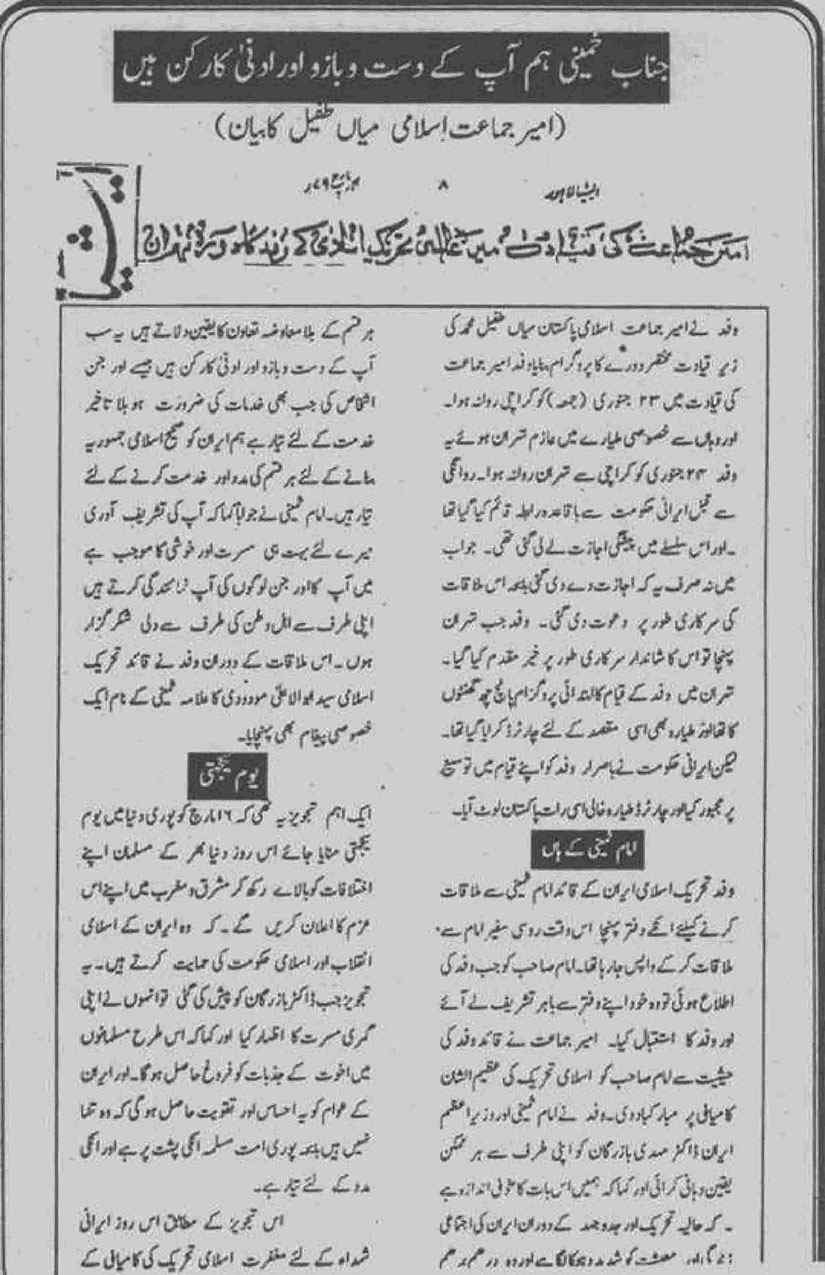 جناب خمینی ہم آپ کے دست و بازو اور ادنیٰ کارکن ہیں
(امیر جماعت اسلامی میاں طفیل کا بیان)
ایشیا لاہور ۸
امیر جماعت کی قیادت میں عالمی تحریک اسلامی کے وفد کا دورۂ تہران
وفد نے امیر جماعت اسلامی پاکستان میاں طفیل محمد کی
زیر قیادت مختصر دورے کا پروگرام بنایا وفد امیر جماعت
کی قیادت میں ۲۳ جنوری (جمعہ) کو کراچی روانہ ہوا۔
اور وہاں سے خصوصی طیارے میں عازم تہران ہوئے یہ
وفد ۲۴ جنوری کو کراچی سے تہران روانہ ہوا۔ روانگی
سے قبل ایرانی حکومت سے باقاعدہ رابطہ قائم کیا گیا تھا
۔اور اس سلسلے میں پیشگی اجازت لے لی گئی تھی۔ جواب
میں نہ صرف یہ کہ اجازت دے دی گئی بلکہ اس ملاقات
کی سرکاری طور پر دعوت دی گئی۔ وفد جب تہران
پہنچا تو اس کا شاندار سرکاری طور پر خیر مقدم کیا گیا۔
تہران میں وفد کے قیام کا ابتدائی پروگرام پانچ چھ گھنٹوں
کا تھا اور طیارہ بھی اسی مقصد کے لئے چارٹرڈ کرایا گیا تھا۔
لیکن ایرانی حکومت نے باصرار وفد کو اپنے قیام میں توسیع
پر مجبور کیا اور چارٹرڈ طیارہ خالی اسی رات پاکستان لوٹ آیا۔
امام خمینی کے ہاں
وفد تحریک اسلامی ایران کے قائد امام خمینی سے ملاقات
کرنے کیلئے انکے دفتر پہنچا اس وقت روسی سفیر امام سے
ملاقات کر کے واپس جا رہا تھا۔ امام صاحب کو جب وفد کی
اطلاع ہوئی تو وہ خود اپنے دفتر سے باہر تشریف لے آئے
اور وفد کا استقبال کیا۔ امیر جماعت نے قائد وفد کی
حیثیت سے امام صاحب کو اسلامی تحریک کی عظیم الشان
کامیابی پر مبارکباد دی۔ وفد نے امام خمینی اور وزیر اعظم
ایران ڈاکٹر مہدی بازرگان کو اپنی طرف سے ہر ممکن
یقین دہانی کرائی اور کہا کہ ہمیں اس بات کا خوبی اندازہ ہے
۔ کہ حالیہ تحریک اور جدوجہد کے دوران ایران کی اجتماعی
زندگی اور معیشت کو شدید دھچکا لگا ہے اور وہ درہم برہم
ہر قسم کے بلا معاوضہ تعاون کا یقین دلاتے ہیں یہ سب
آپ کے دست و بازو اور ادنیٰ کارکن ہیں جیسے اور جن
اشخاص کی جب بھی خدمات کی ضرورت ہو بلا تاخیر
خدمت کے لئے تیار ہے ہم ایران کو صحیح اسلامی جمہوریہ
بنانے کے لئے ہر قسم کی مدد اور خدمت کرنے کے لئے
تیار ہیں۔ امام خمینی نے جواباً کہا کہ آپ کی تشریف آوری
میرے لئے بہت ہی مسرت اور خوشی کا موجب ہے
میں آپ کا اور جن لوگوں کی آپ نمائندگی کرتے ہیں
اپنی طرف سے اہل وطن کی طرف سے دلی شکر گزار
ہوں۔ اس ملاقات کے دوران وفد نے قائد تحریک
اسلامی سید ابوالاعلیٰ مودودی کا علامہ خمینی کے نام ایک
خصوصی پیغام بھی پہنچایا۔
یوم یکجہتی
ایک اہم تجویز یہ تھی کہ ۱۶ مارچ کو پوری دنیا میں یوم
یکجہتی منایا جائے اس روز دنیا بھر کے مسلمان اپنے
اختلافات کو بالائے رکھ کر مشرق و مغرب میں اپنے اس
عزم کا اعلان کریں گے۔ کہ وہ ایران کے اسلامی
انقلاب اور اسلامی حکومت کی حمایت کرتے ہیں۔ یہ
تجویز جب ڈاکٹر بازرگان کو پیش کی گئی تو انہوں نے اپنی
گہری مسرت کا اظہار کیا اور کہا کہ اس طرح مسلمانوں
میں اخوت کے جذبات کو فروغ حاصل ہوگا۔ اور ایران
کے عوام کو یہ احساس اور تقویت حاصل ہوگی کہ وہ تنہا
نہیں ہیں بلکہ پوری امت مسلمہ انکی پشت پر ہے اور انکی
مدد کے لئے تیار ہے۔
اس تجویز کے مطابق اس روز ایرانی
شہداء کے لئے مغفرت اسلامی تحریک کی کامیابی کے